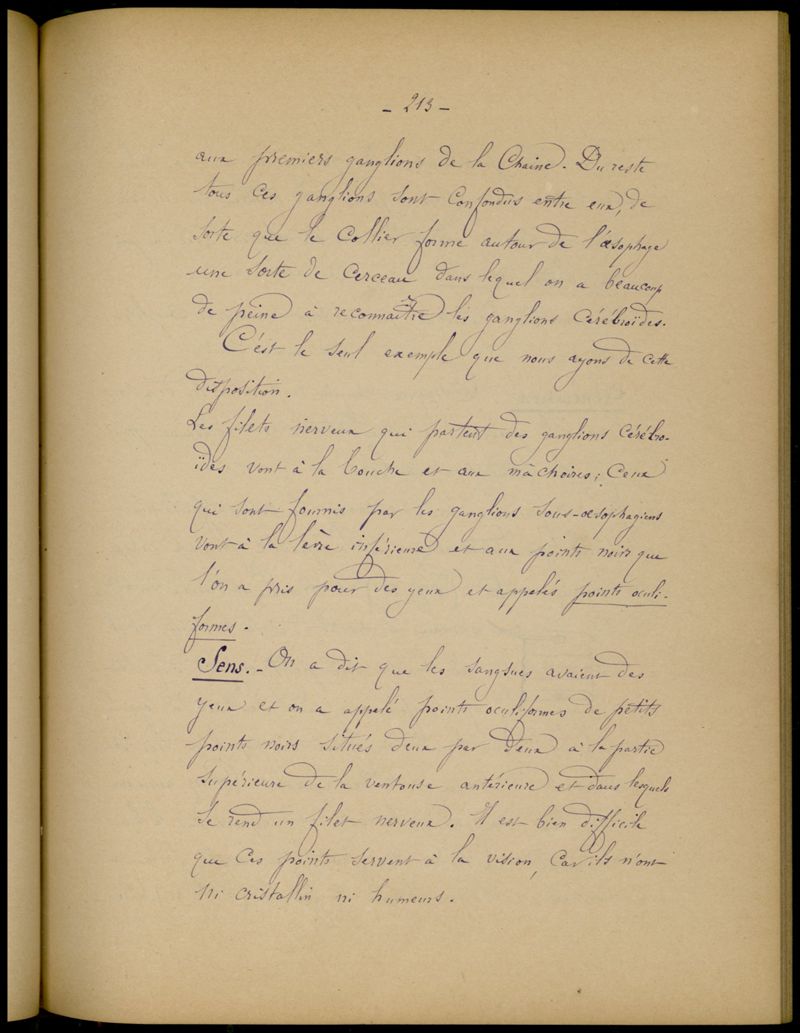 - 213 -
aux premiers ganglions de la Chaine. Du reste
tous ces ganglions sont confondus entre eux, de
sorte que le Collier forme autour de l'œsophage
une sorte de Cerceau dans lequel on a beaucoup
de peine à reconnaître les ganglions Cérébroïdes.
C'est le seul exemple que nous ayons de cette
disposition.
Les filets nerveux qui partent des ganglions Cérébro-
ïdes vont à la bouche et aux mâchoires; Ceux
qui sont fournis par les ganglions sous-œsophagiens
vont à la lèvre inférieure et aux points noirs que
l'on a pris pour des yeux et appelés points oculi-
formes.
Sens. - On a dit que les sangsues avaient des
yeux et on a appelé points oculiformes de petits
points noirs situés deux par deux à la partie
supérieure de la ventouse antérieure et dans lesquels
se rend un filet nerveux. Il est bien difficile
que ces points servent à la vision, car ils n'ont
ni cristallin ni humeurs.